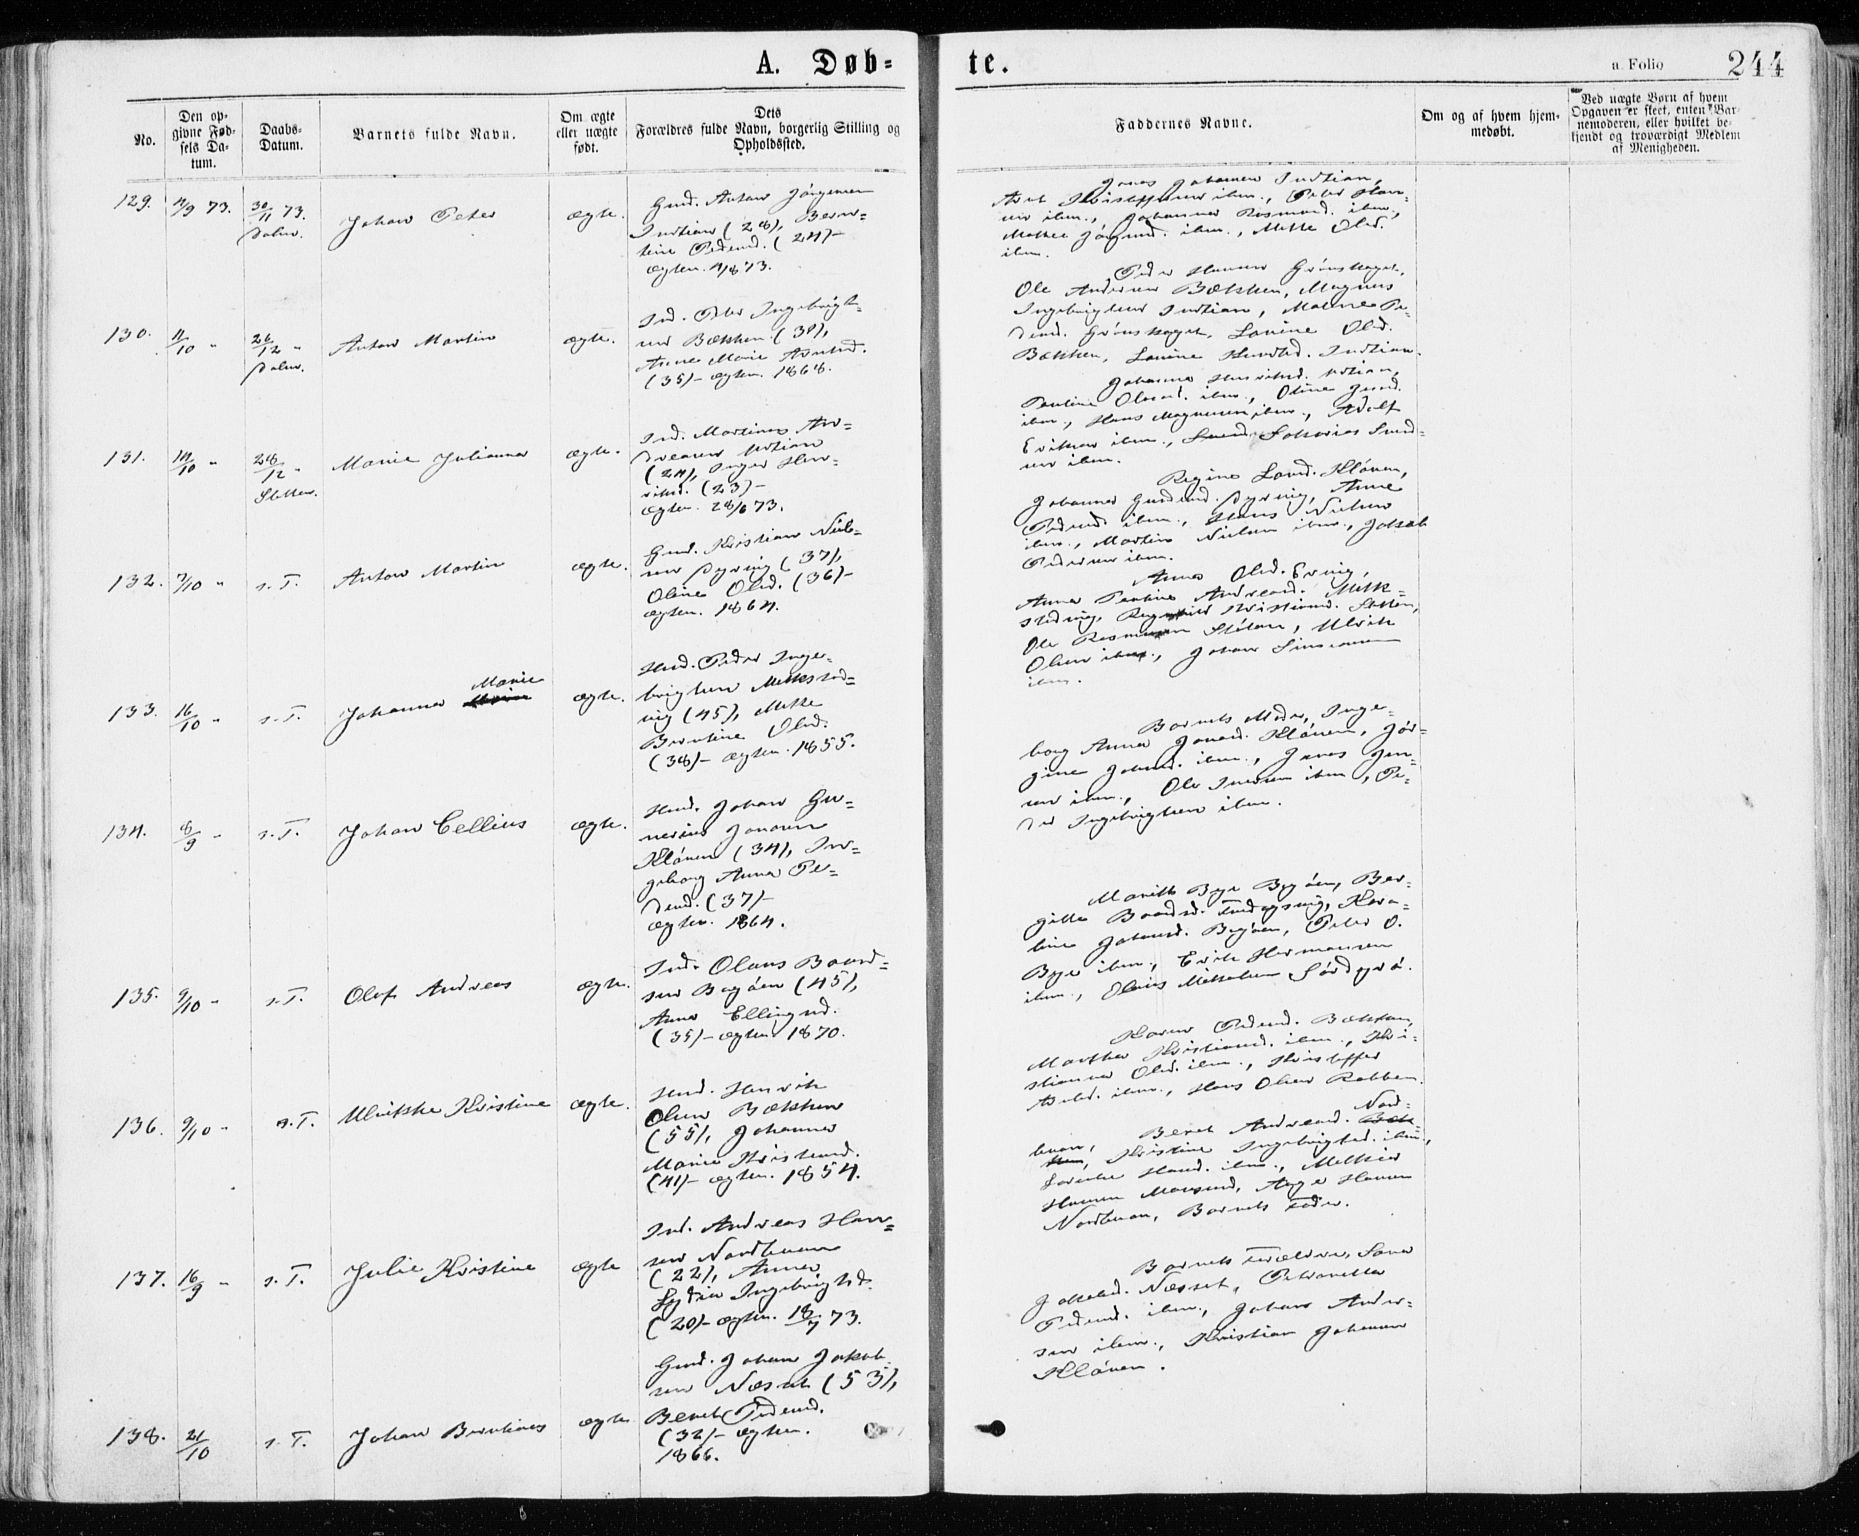 A. Døb=
te.
a. Folio 244
No.
Den op-
givne Fød-
sels Da-
tum.
Daabs-
Datum.
Barnets fulde Navn.
Om ægte
eller uægte
født.
Dets
Forældres fulde Navn, borgerlig Stilling og
Opholdssted.
Faddernes Navne.
Om og af hvem hjem-
medøbt.
Ved uægte Børn af hvem
Opgaven er skeet, enten Bar-
nemoderen, eller hvilket be-
kjendt og troværdigt Medlem
af Menigheden.
129. 4/9 73. 30/11 73. Johan Peter ægte.
Gmd. Anton Jörgensen
Indtian (28), Bern=
tine Pedersd. (24)-
ægtev. 4/8 73.
Jonas Johansen Indtian,
ibm., Johanna Rasmusd. ibm.,
ibm., Mette Olsd.
ibm.
130. 11/10 " 26/12 " Anton Martin ægte.
Ind. Peter Ingebrigt=
sen Bækken (30),
Anne Marie Arntsd.
(35)- ægtev. 1868.
Peder Hansen Grönskaget,
Ole Andersen Bækken, Magnus
Ingebrigtsen Indtian, Malene Pe=
dersd. Grönskaget, Lovine Olsd.
Bækken, Lovine Knudsd. Indtian.
131. 14/10 " 28/12 " Marie Julianna ægte.
Ind. Martinus An=
dreasen Udtian
(24), Inger Hen=
riksd. (23)-
ægtev. 28/6 73.
Johanna Henriksd. Udtian,
Pauline Olsd. ibm., Oline
ibm., Hans Magnusen ibm., Adolf
Eriksen ibm.,
sen ibm.
132. 7/10 " s. T. Anton Martin ægte.
Gmd. Kristian Niel=
sen Pyrvig (37),
Oline Olsd. (36)-
ægtev. 1864.
Regine Larsd. Klöven,
Johanna Pyrvig, Anne
Pedersd. ibm., Hans Nielsen
ibm., Martin Nielsen ibm., Jakob
Pedersen ibm.
133. 16/10 " s. T. Johanna Marie ægte.
Hmd. Peder Inge=
brigtsen Melkstad=
vig (45), Mette
Berntine Olsd.
(38)- ægtev. 1855.
Anna Olsd. Ervig,
Anna Pauline Andreasd. Melk=
stadvig, Kristiansd. Setten,
Ole Rasmusen, Ulrik
Olsen ibm., Johan Simonsen
ibm.
134. 8/9 " s. T. Johan Cellius ægte.
Hmd. Johan Gu=
nerius Jonasen
Klöven (34), In=
geborg Anna Pe=
dersd. (37)-
ægtev. 1864.
Barnets Moder, Inge=
borg Anna Jonasd. Klöven, Jör=
gine Johnsd. ibm., Jonas Jen=
sen ibm., Ole Iversen ibm., Pe=
der Ingebrigtsen ibm.
135. 9/10 " s. T. Olaf Andreas ægte.
Ind. Olaus Baard=
sen Bogöen (45),
Anna Ellingsd.
(35)- ægtev. 1870.
Marith Bye Bogöen, Ber=
gitte Baardsd., Karo=
line Johansd. Bogöen, Peter O.
Bye ibm., Erik Hermansen
ibm., Olaus Mikkelsen Sördyrö.
136. 9/10 " s. T. Ulrikke Kristine ægte.
Hmd. Henrik
Olsen Bækken
(55), Johanna
Marie Kristensd.
(41)- ægtev. 1854.
Karen Pedersd. Bækken,
Martha Kristiansd. ibm., Kri=
stianna Olsd. ibm., Kristoffer
ibm., Hans Olsen Rabben.
137. 16/9 " s. T. Julie Kristine ægte
Ind. Andreas Han=
sen Nordbuan
(22), Anna
Lydia Ingebrigtsd.
(20)- ægtev. 18/7 73.
Beret Andreasd. Nord=
buan, Kristine Ingebrigtsd. ibm.,
Lorentse Hansd. ibm., Melkior
Hansen Mausund, Aage Hansen
Nordbuan, Barnets Fader.
138. 21/10 s. T. Johan Berntinus ægte
Gmd. Johan Jakob=
sen Næsset (53),
Beret Pedersd.
(32)- ægtev.
1866.
Barnets Forældre,
Jakobsd. Næsset, Petronelle
Pedersd. ibm., Johan Ander=
sen ibm., Kristian Johansen
Klöven.